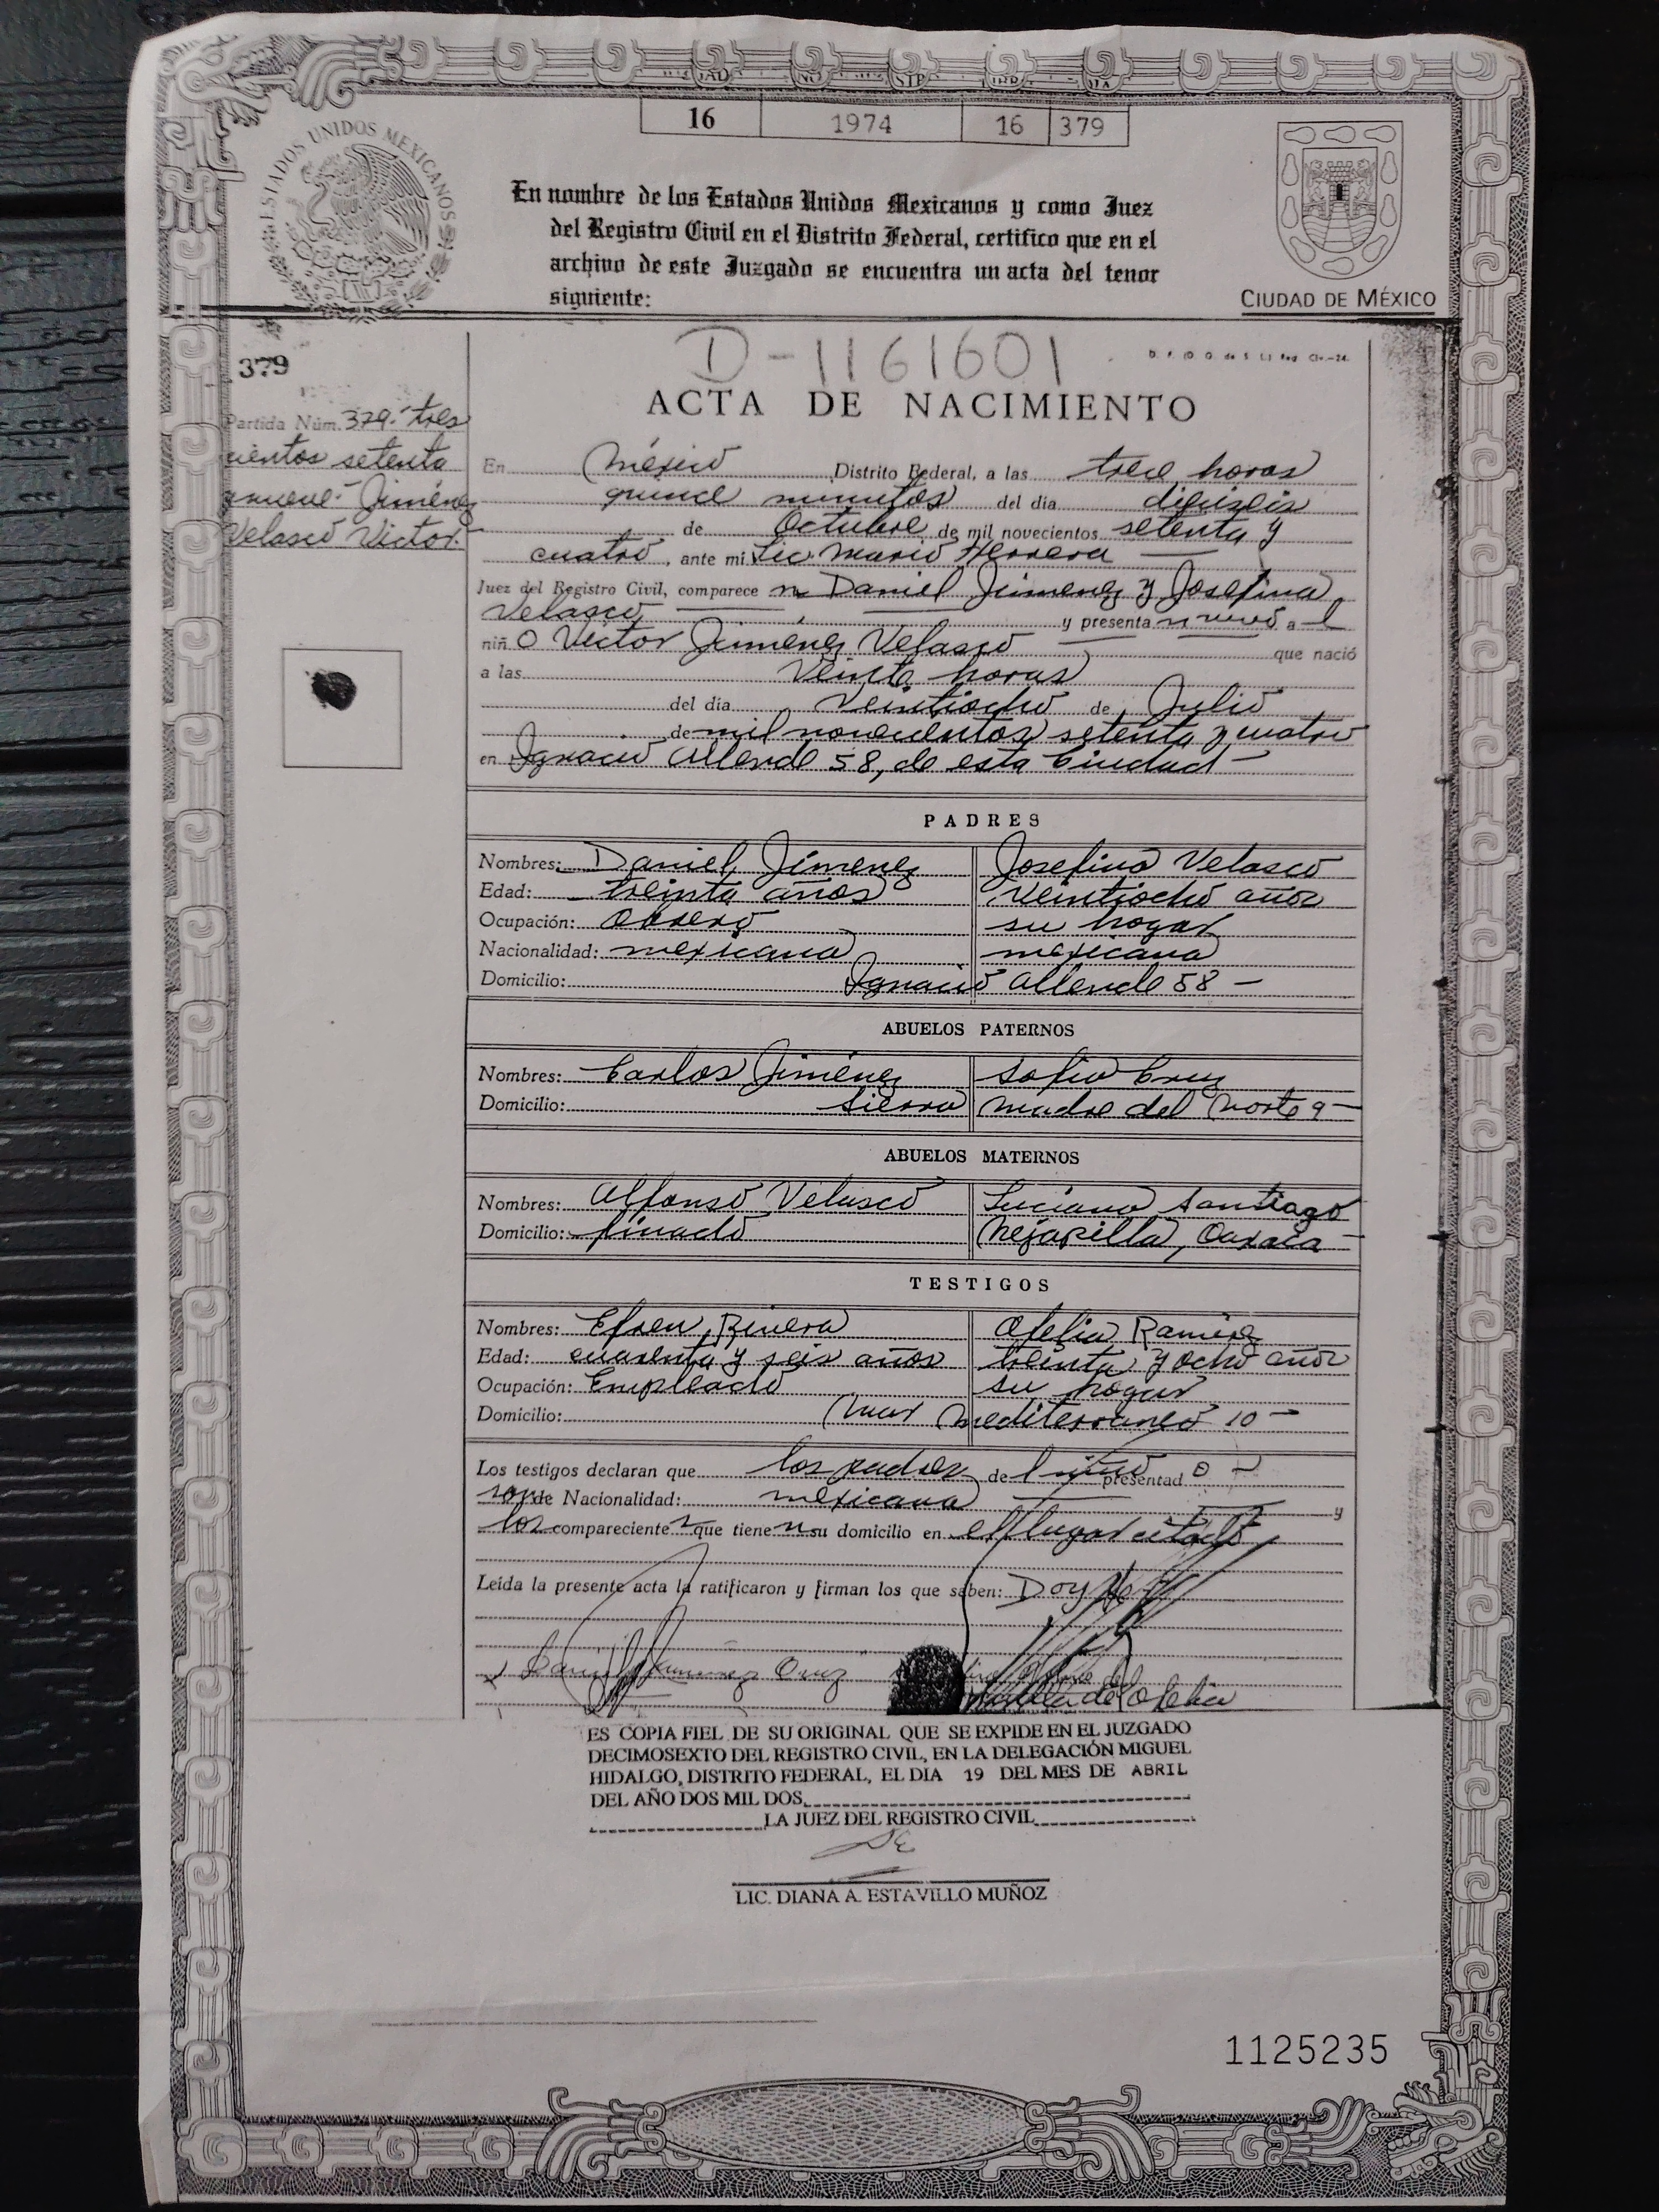 16 1974 16 379
ESTADOS UNIDOS MEXICANOS
En nombre de los Estados Unidos Mexicanos y como Juez
del Registro Civil en el Distrito Federal, certifico que en el
archivo de este Juzgado se encuentra un acta del tenor
siguiente:
CIUDAD DE MÉXICO
D-1161601
379
ACTA DE NACIMIENTO
Partida Núm. 379.- tres
cientos setenta
y nueve.- Jiménez
Velasco Victor.
En México Distrito Federal, a las trece horas
quince minutos del dia dieciseis
de Octubre de mil novecientos setenta y
cuatro, ante mi Lic Mario Herrera
Juez del Registro Civil, comparece n Daniel Jimenez y Josefina
Velasco y presenta n vivo a l
niñ o Victor Jiménez Velasco que nació
a las Veinte horas
del dia Veintiocho de Julio
de mil novecientos setenta y cuatro
en Ignacio Allende 58, de esta Ciudad -
PADRES
Nombres: Daniel Jimenez Josefina Velasco
Edad: treinta años Veintiocho años
Ocupación: Obrero su hogar
Nacionalidad: mexicana mexicana
Domicilio: Ignacio Allende 58 -
ABUELOS PATERNOS
Nombres: Carlos Jiménez Sofia Cruz
Domicilio: Sierra madre del Norte 9 -
ABUELOS MATERNOS
Nombres: Alfonso Velasco Luciana Santiago
Domicilio: finado Nejapilla, Oaxaca -
TESTIGOS
Nombres: Efren Rivera Ofelia Ramirez
Edad: cuarenta y seis años treinta y ocho años
Ocupación: Empleado su hogar
Domicilio: Mar Mediterraneo 10 -
Los testigos declaran que los padres de l niño presentad o -
son de Nacionalidad: mexicana y
los compareciente s que tiene n su domicilio en el lugar citado
Leída la presente acta la ratificaron y firman los que saben: Doy fe
Daniel Jimenez Cruz
huella de Ofelia
ES COPIA FIEL DE SU ORIGINAL QUE SE EXPIDE EN EL JUZGADO
DECIMOSEXTO DEL REGISTRO CIVIL, EN LA DELEGACIÓN MIGUEL
HIDALGO, DISTRITO FEDERAL, EL DIA 19 DEL MES DE ABRIL
DEL AÑO DOS MIL DOS
LA JUEZ DEL REGISTRO CIVIL
LIC. DIANA A. ESTAVILLO MUÑOZ
1125235